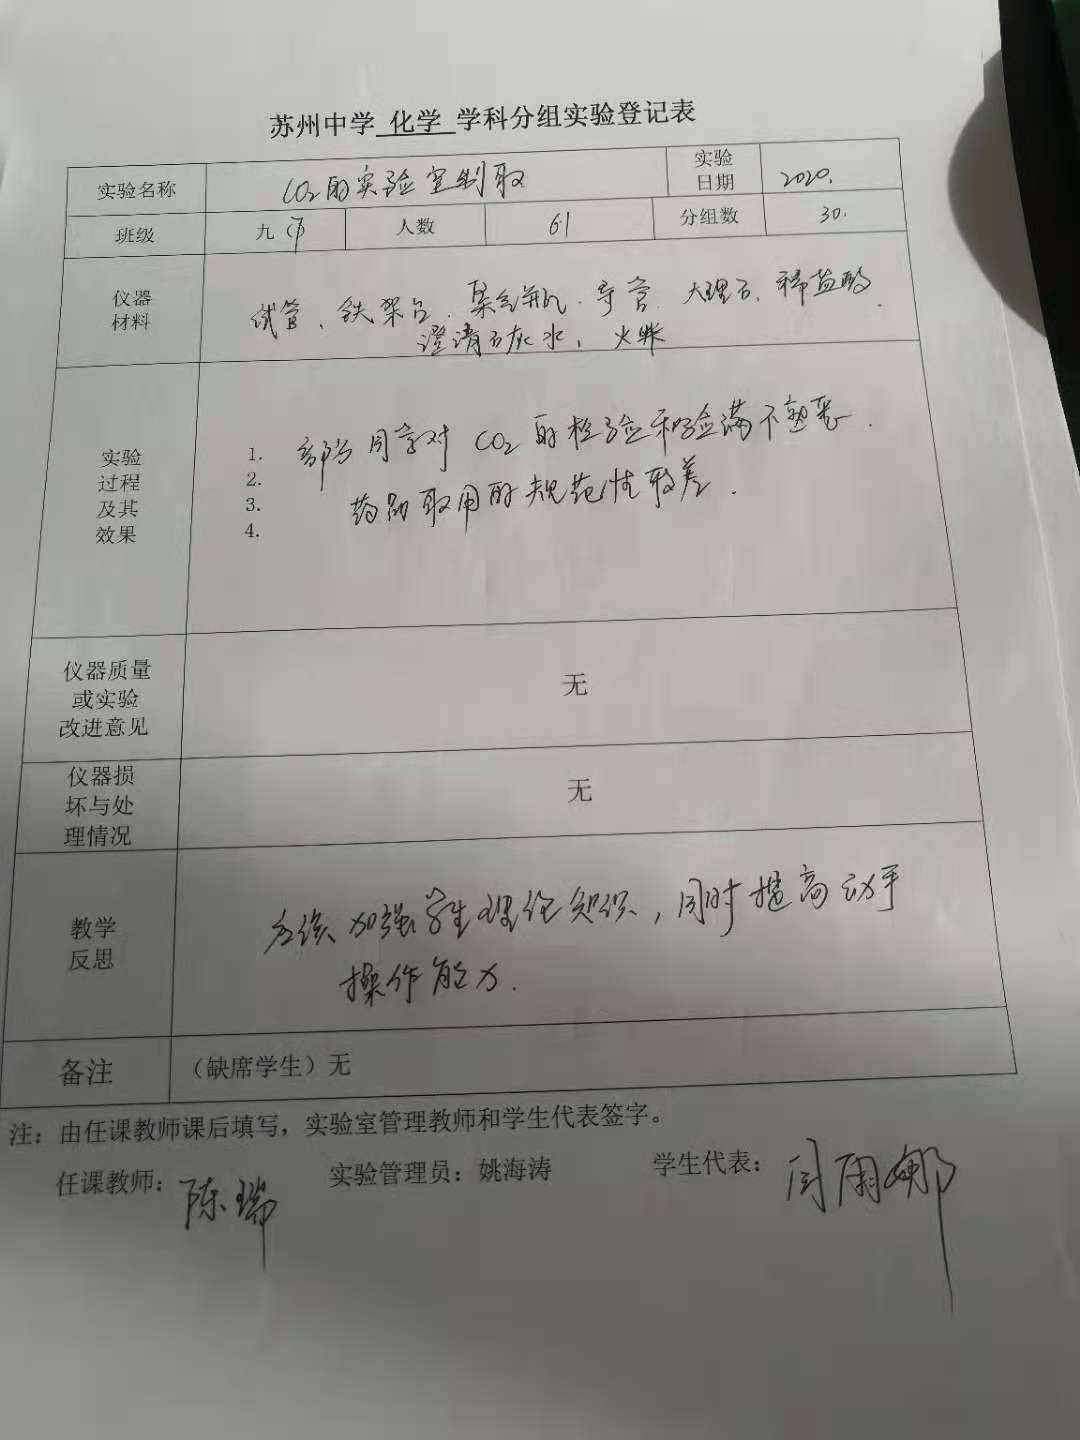 苏州中学 化学 学科分组实验登记表
实验名称 CO₂的实验室制取 实验日期 2020.
班级 九 人数 61 分组数 30.
仪器材料 试管、铁架台、集气瓶、导管、大理石、稀盐酸、
澄清石灰水、火柴
实验过程及其效果
1. 部分同学对CO₂的检验和验满不熟悉.
2. 药品取用的规范性较差.
3.
4.
仪器质量或实验改进意见 无
仪器损坏与处理情况 无
教学反思 应该加强学生理论知识,同时提高动手
操作能力.
备注 (缺席学生)无
注:由任课教师课后填写,实验室管理教师和学生代表签字。
任课教师:陈瑞 实验管理员:姚海涛 学生代表:闫雨娜